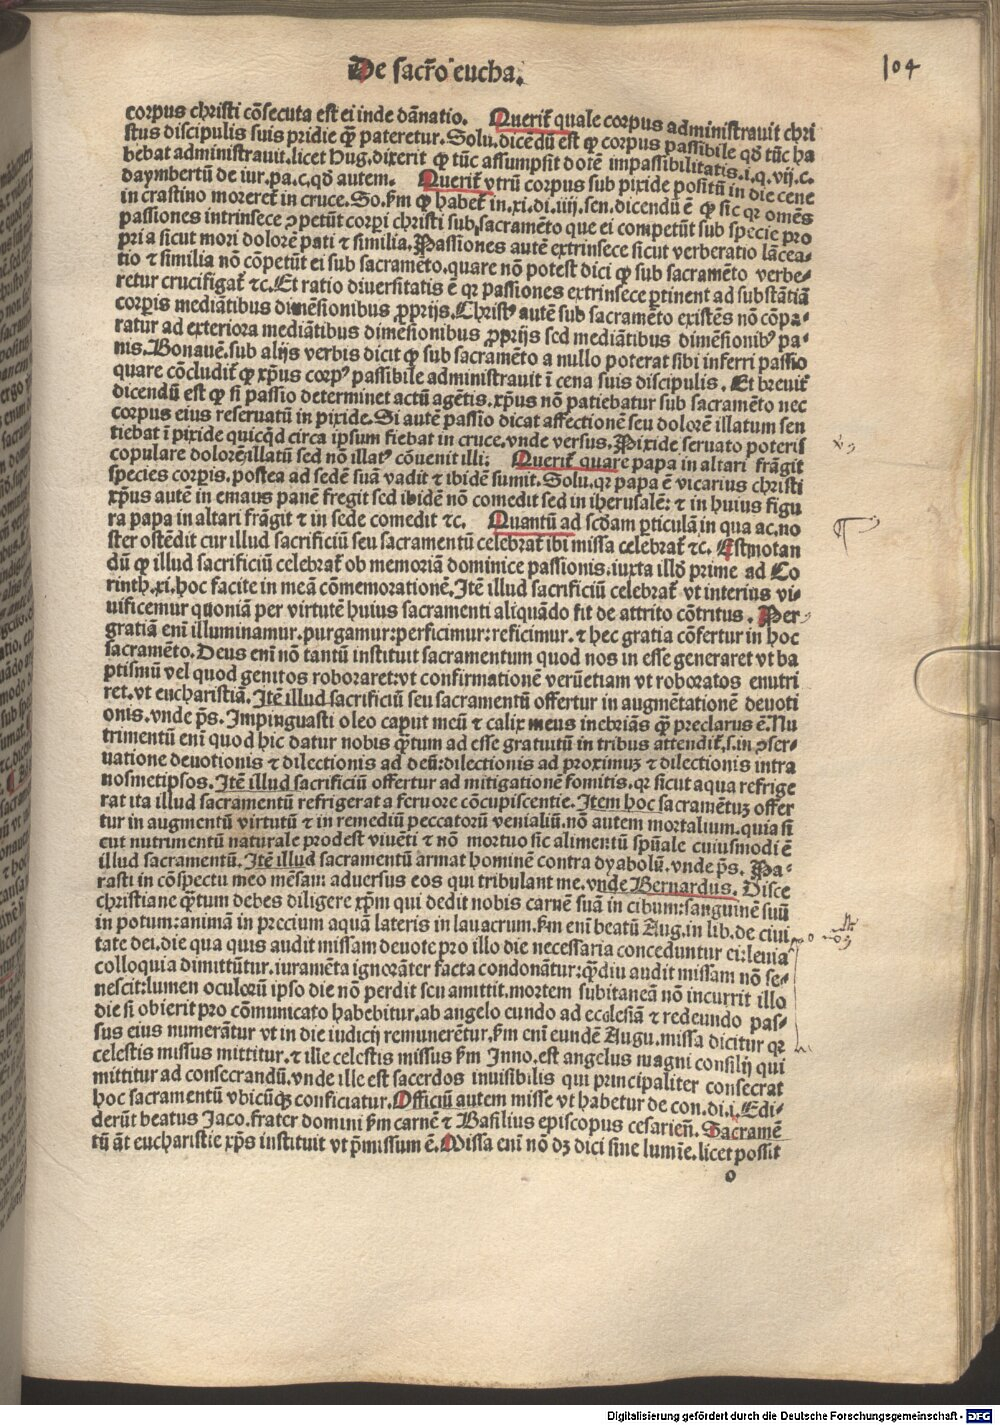 De sacr̄o eucha.
104
corpus christi cōsecuta est ei inde dānatio. Querit̄ quale corpus administrauit chri
stus discipulis suis pridie qꝫ pateretur. Solu. dicēdū est ꝙ corpus passibile qd̄ tūc ha
bebat administrauit. licet Hug. dixerit ꝙ tūc assumpsit dotē impassibilitatis. i. q. vij. c.
daymbertū de iur. pa. c. qd̄ autem. Querit̄ vtrū corpus sub pixide positū in die cene
in crastino moreret̄ in cruce. So. ẜm ꝙ habet̄ in. xi. di. iiij. sen. dicendū ē ꝙ sic qr omēs
passiones intrinsece ↄpetūt corpi christi sub sacramēto que ei competūt sub specie pro
pria sicut mori dolorē pati ⁊ similia. Passiones autē extrinsece sicut verberatio lācea⸗
tio ⁊ similia nō cōpetūt ei sub sacramēto. quare nō potest dici ꝙ sub sacramēto verbe⸗
retur crucifigat̄ ⁊c. Et ratio diuersitatis ē qr passiones extrinsece ꝑtinent ad substātiā
corpis mediātibus dimēsionibus ꝓprijs. Christꝰ autē sub sacramēto existēs nō cōpa⸗
ratur ad exteriora mediātibus dimēsionibus ꝓprijs sed mediātibus dimēsionibꝰ pa⸗
nis. Bonauē. sub alijs verbis dicit ꝙ sub sacramēto a nullo poterat sibi inferri passio
quare cōcludit̄ ꝙ xp̄us corpꝰ passibile administrauit ī cena suis discipulis. Et breuit̄
dicendū est ꝙ si passio determinet actū agētis. xp̄us nō patiebatur sub sacramēto nec
corpus eius reseruatū in pixide. Si autē passio dicat affectionē seu dolorē illatum sen
tiebat ī pixide quicqd circa ipsum fiebat in cruce. vnde versus. Pixide seruato poteris
copulare dolorē illatū sed nō illatꝰ cōuenit illi: Querit̄ quare papa in altari frāgit
species corpis. postea ad sedē suā vadit ⁊ ibidē sumit. Solu. qr papa ē vicarius christi
xp̄us autē in emaus panē fregit sed ibidē nō comedit sed in iherusalē: ⁊ in huius figu
ra papa in altari frāgit ⁊ in sede comedit ⁊c. Quantū ad scd̄am ꝑticulā in qua ac. no
ster ostēdit cur illud sacrificiū seu sacramentū celebrat̄ ibi missa celebrat̄ ⁊c. Est notan
dū ꝙ illud sacrificiū celebrat̄ ob memoriā dominice passionis. iuxta illd̄ prime ad Co
rinth. xi. hoc facite in meā cōmemorationē. Itē illud sacrificiū celebrat̄ vt interius vi⸗
uificemur quoniā per virtutē huius sacramenti aliquādo fit de attrito cōtritus. Per
gratiā enī illuminamur. purgamur: perficimur: reficimur. ⁊ hec gratia cōfertur in hoc
sacramēto. Deus enī nō tantū instituit sacramentum quod nos in esse generaret vt ba
ptismū vel quod genitos roboraret: vt confirmationē verūetiam vt roboratos enutri
ret. vt eucharistiā. Itē illud sacrificiū seu sacramentū offertur in augmētationē deuoti
onis. vnde p̄s. Impinguasti oleo caput meū ⁊ calix meus inebriās qꝫ preclarus ē. Nu
trimentū enī quod hic datur nobis qꝫtum ad esse gratuitū in tribus attendit̄. s. in ↄser⸗
uatione deuotionis ⁊ dilectionis ad deū: dilectionis ad proximuꝫ ⁊ dilectionis intra
nosmetipsos. Itē illud sacrificiū offertur ad mitigationē fomitis. qr sicut aqua refrige
rat ita illud sacramentū refrigerat a feruore cōcupiscentie. Item hoc sacramētuꝫ offer
tur in augmentū virtutū ⁊ in remediū peccatorū venialiū. nō autem mortalium. quia si
cut nutrimentū naturale prodest viuēti ⁊ nō mortuo sic alimentū sp̄uale cuiusmodi ē
illud sacramentū. Itē illud sacramentū armat hominē contra dyabolū. vnde p̄s. Pa⸗
rasti in cōspectu meo mēsam aduersus eos qui tribulant me. vnde Bernardus. Disce
christiane qꝫtum debes diligere xp̄m qui dedit nobis carnē suā in cibum: sanguinē suū
in potum: animā in precium aquā lateris in lauacrum. ẜm enī beatū Aug. in lib. de ciui
tate dei. die qua quis audit missam deuote pro illo die necessaria conceduntur ei: leuia
colloquia dimittūtur. iuramēta ignorāter facta condonātur: qꝫdiu audit missam nō se⸗
nescit: lumen oculorū ipso die nō perdit seu amittit. mortem subitaneā nō incurrit illo
die si obierit pro cōmunicato habebitur. ab angelo eundo ad ecclesiā ⁊ redeundo pas⸗
sus eius numerātur vt in die iudicij remunerētur. ẜm enī eundē Augu. missa dicitur qr
celestis missus mittitur. ⁊ ille celestis missus ẜm Inno. est angelus magni consilij qui
mittitur ad consecrandū. vnde ille est sacerdos inuisibilis qui principaliter consecrat
hoc sacramentū vbicūqꝫ conficiatur. Officiū autem misse vt habetur de con. di. i. Edi⸗
derūt beatus Jaco. frater domini ẜm carnē ⁊ Basilius episcopus cesarien̄. Sacramē
tū āt eucharistie xp̄s instituit vt p̄missum ē. Missa enī nō dꝫ dici sine lumīe. licet possit
o
Digitalisierung gefördert durch die Deutsche Forschungsgemeinschaft - DFG